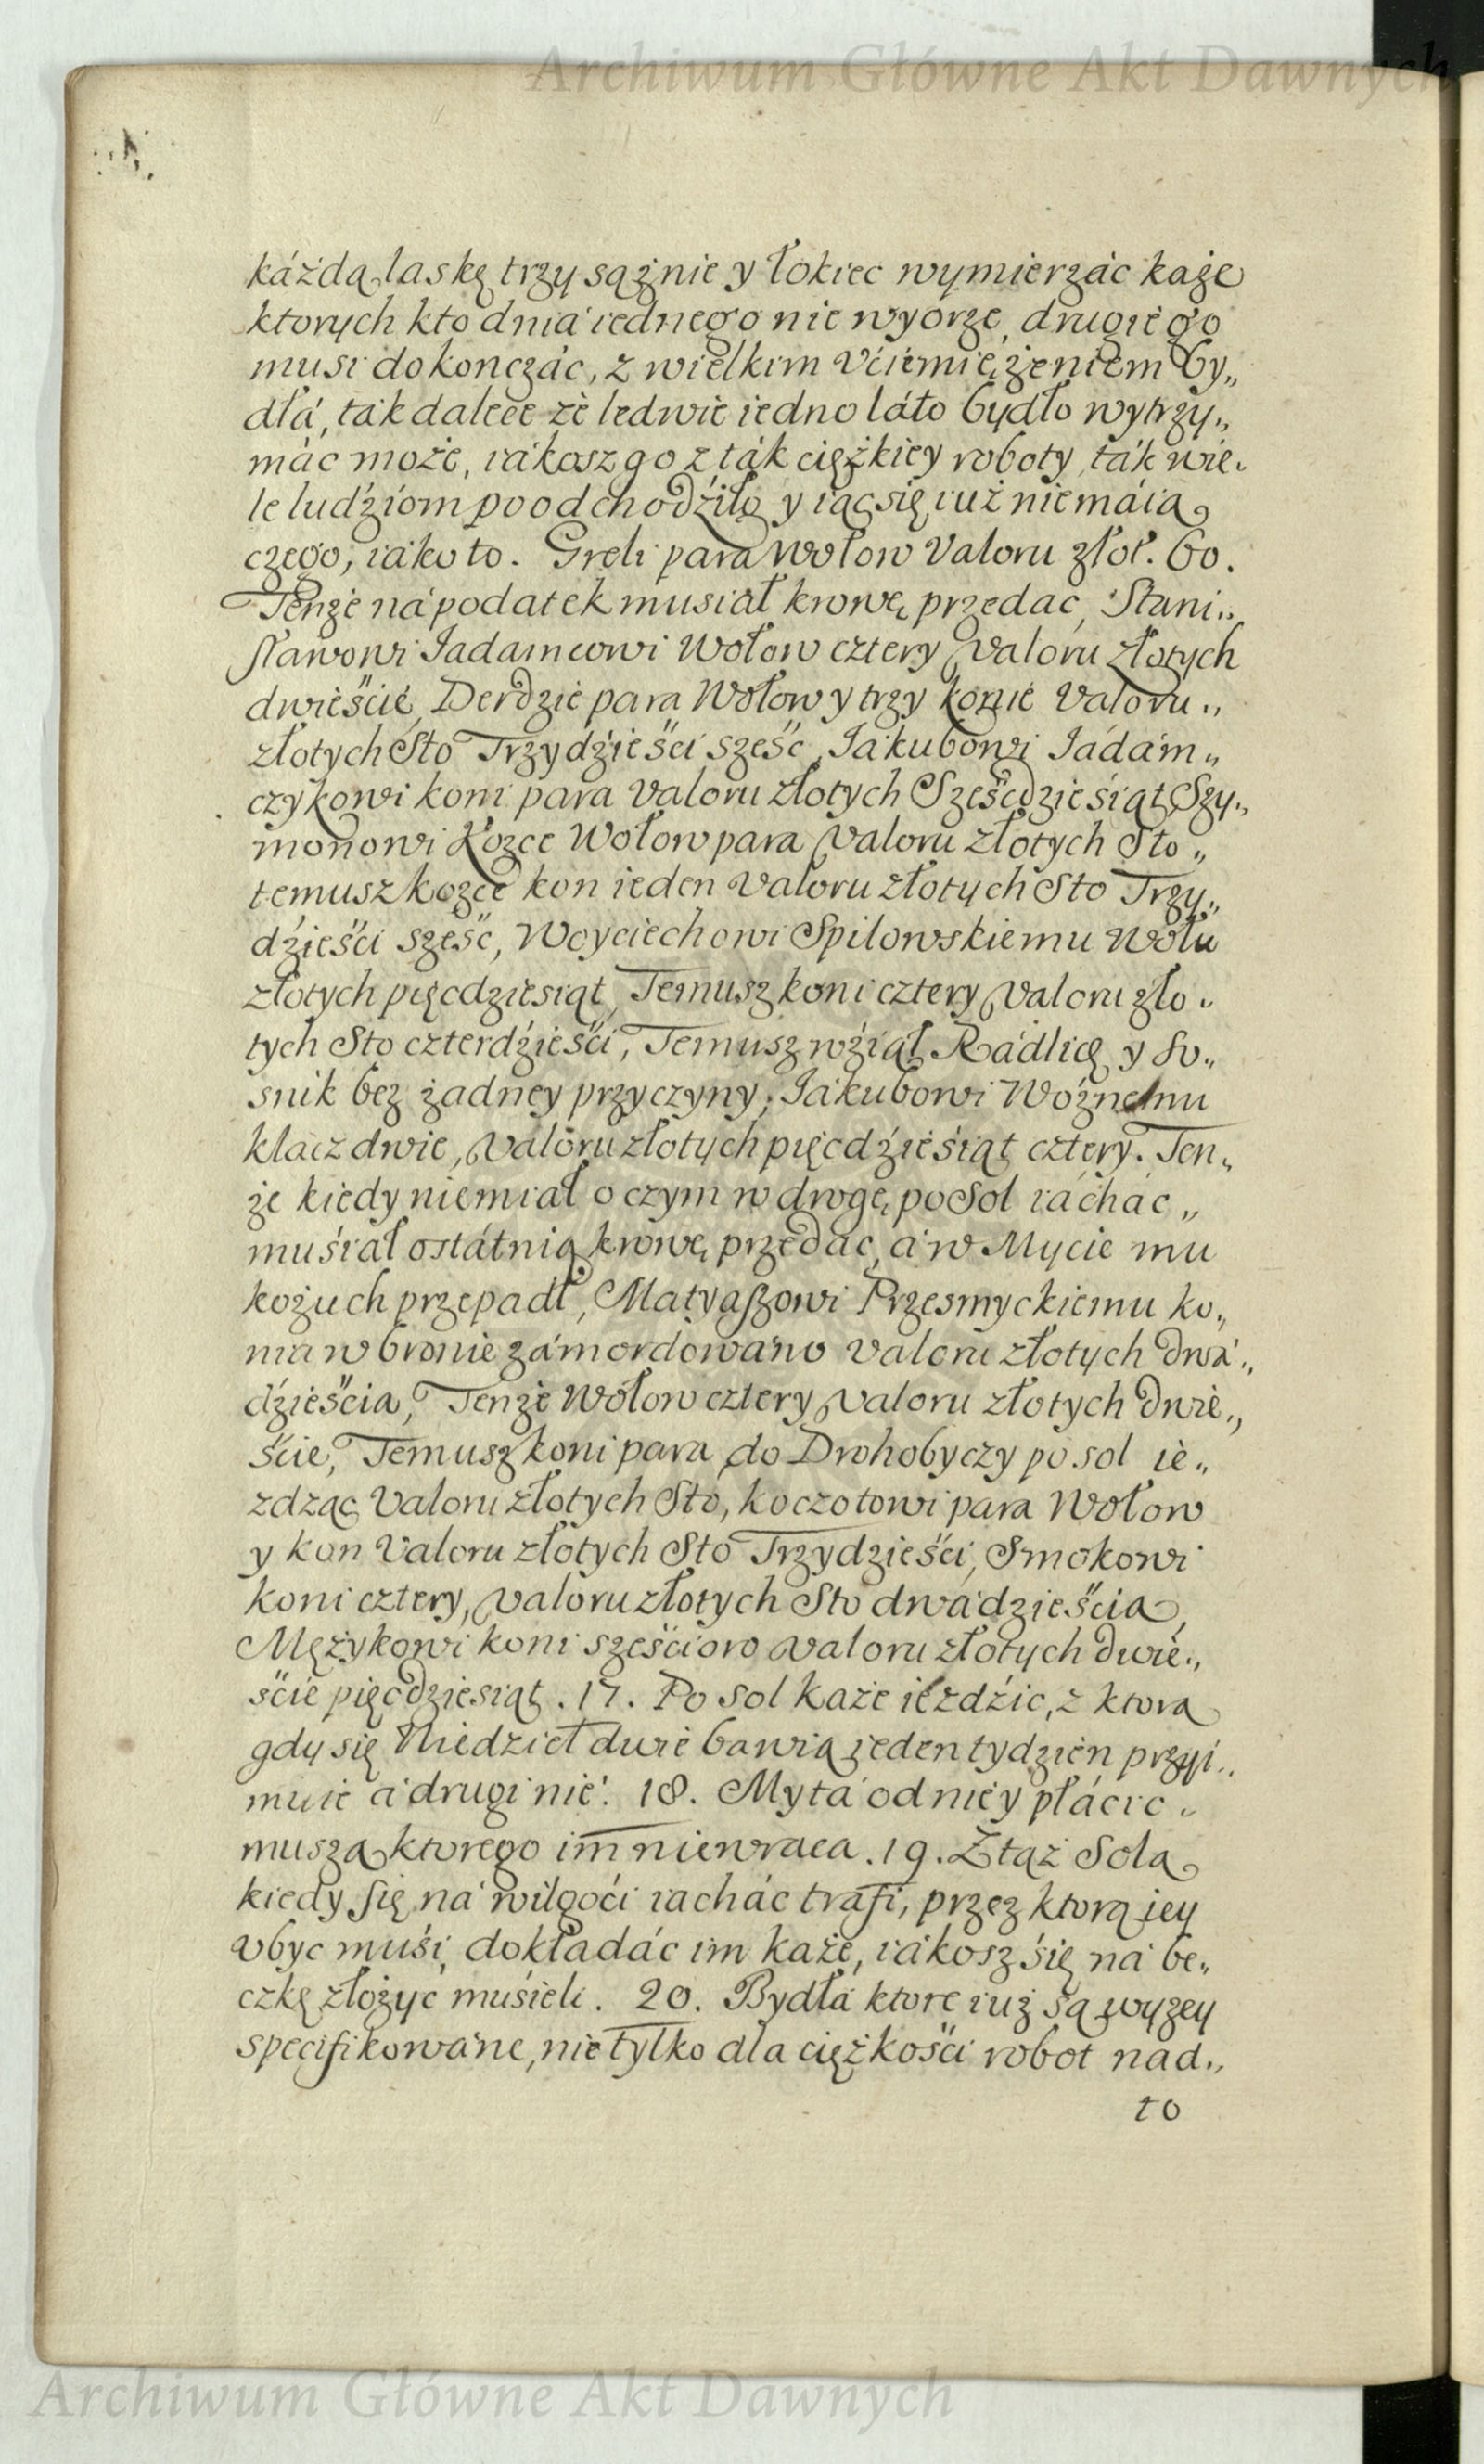 Archiwum Główne Akt Dawnych
káżdą laskę trzy sążnie y łokiec wymierzác każe
ktorych kto dnia iednego nie wyorze, drugiego
musi dokonczác, z wielkim Vciemiężeniem by„
dłá, ták dalece że ledwie iedno láto bydło wytrzy„
mác może, iákosz go z ták cięzkiey roboty ták wie„
le ludźiom poodchodźiło y iąc się iuż nie máią
czego, iáko to. Greli para Wołow Valoru złoł. 60.
Tenże ná podatek musiał krowę przedac, Stani„
sławowi Jadamcowi Wołow cztery Valoru złotych
dwieście, Derdzie para Wołow y trzy konie Valoru„
złotych Sto Trzydźieści sześc, Jákubowi Jádám„
czykowi koni para Valoru złotych Sześcdzieśiąt, Szy„
monowi Kozce Wołow para Valoru złotych Sto„
temusz kozce kon ieden Valoru złotych Sto Trzy„
dźieści sześc, Woyciechowi Spilowskiemu Wołu
złotych pięcdziesiąt, Temusz koni cztery Valoru zło„
tych Sto czterdźieści, Temusz wźiął Rádlicę y So„
snik bez żadney przyczyny, Jákubowi Woźnemu
klacz dwie, Valoru złotych pięcdźieśiąt cztery. Ten„
że kiedy niemiał o czym w drogę po Sol iáchác„
muśiał ostátnią krowę przedac, á w Mycie mu
kożuch przepadł, Matyaszowi Przesmyckiemu ko„
nia w bronie zámordowáno Valoru złotych dwá„
dźieścia, Tenże Wołow cztery Valoru złotych dwie„
ście, Temusz koni para do Drohobyczy po sol ie„
zdząc Valoru złotych Sto, koczotowi para Wołow
y kon Valoru złotych Sto Trzydzieści, Smokowi
koni cztery, Valoru złotych Sto dwádzieścia,
Mężykowi koni sześcioro Valoru złotych dwie„
ście pięcdziesiąt. 17. Po sol każe iezdźic, z ktorą
gdy się Niedziel dwie bawią ieden tydzien przyi„
muie á drugi nie. 18. Mytá od niey płácic„
muszą ktorego im niewraca. 19. Z tąż Solą
kiedy się ná wilgoći iachác trafi, przez ktorą iey
vbyc muśi, dokładác im każe, iákosz śię ná be„
czkę złożyc muśieli. 20. Bydłá ktore iuż są wyzey
specifikowáne, nie tylko dla ciężkości robot nad„
to
Archiwum Główne Akt Dawnych